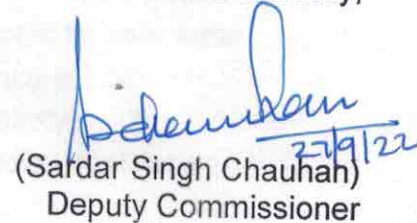 27/9/22
(Sardar Singh Chauhan)
Deputy Commissioner